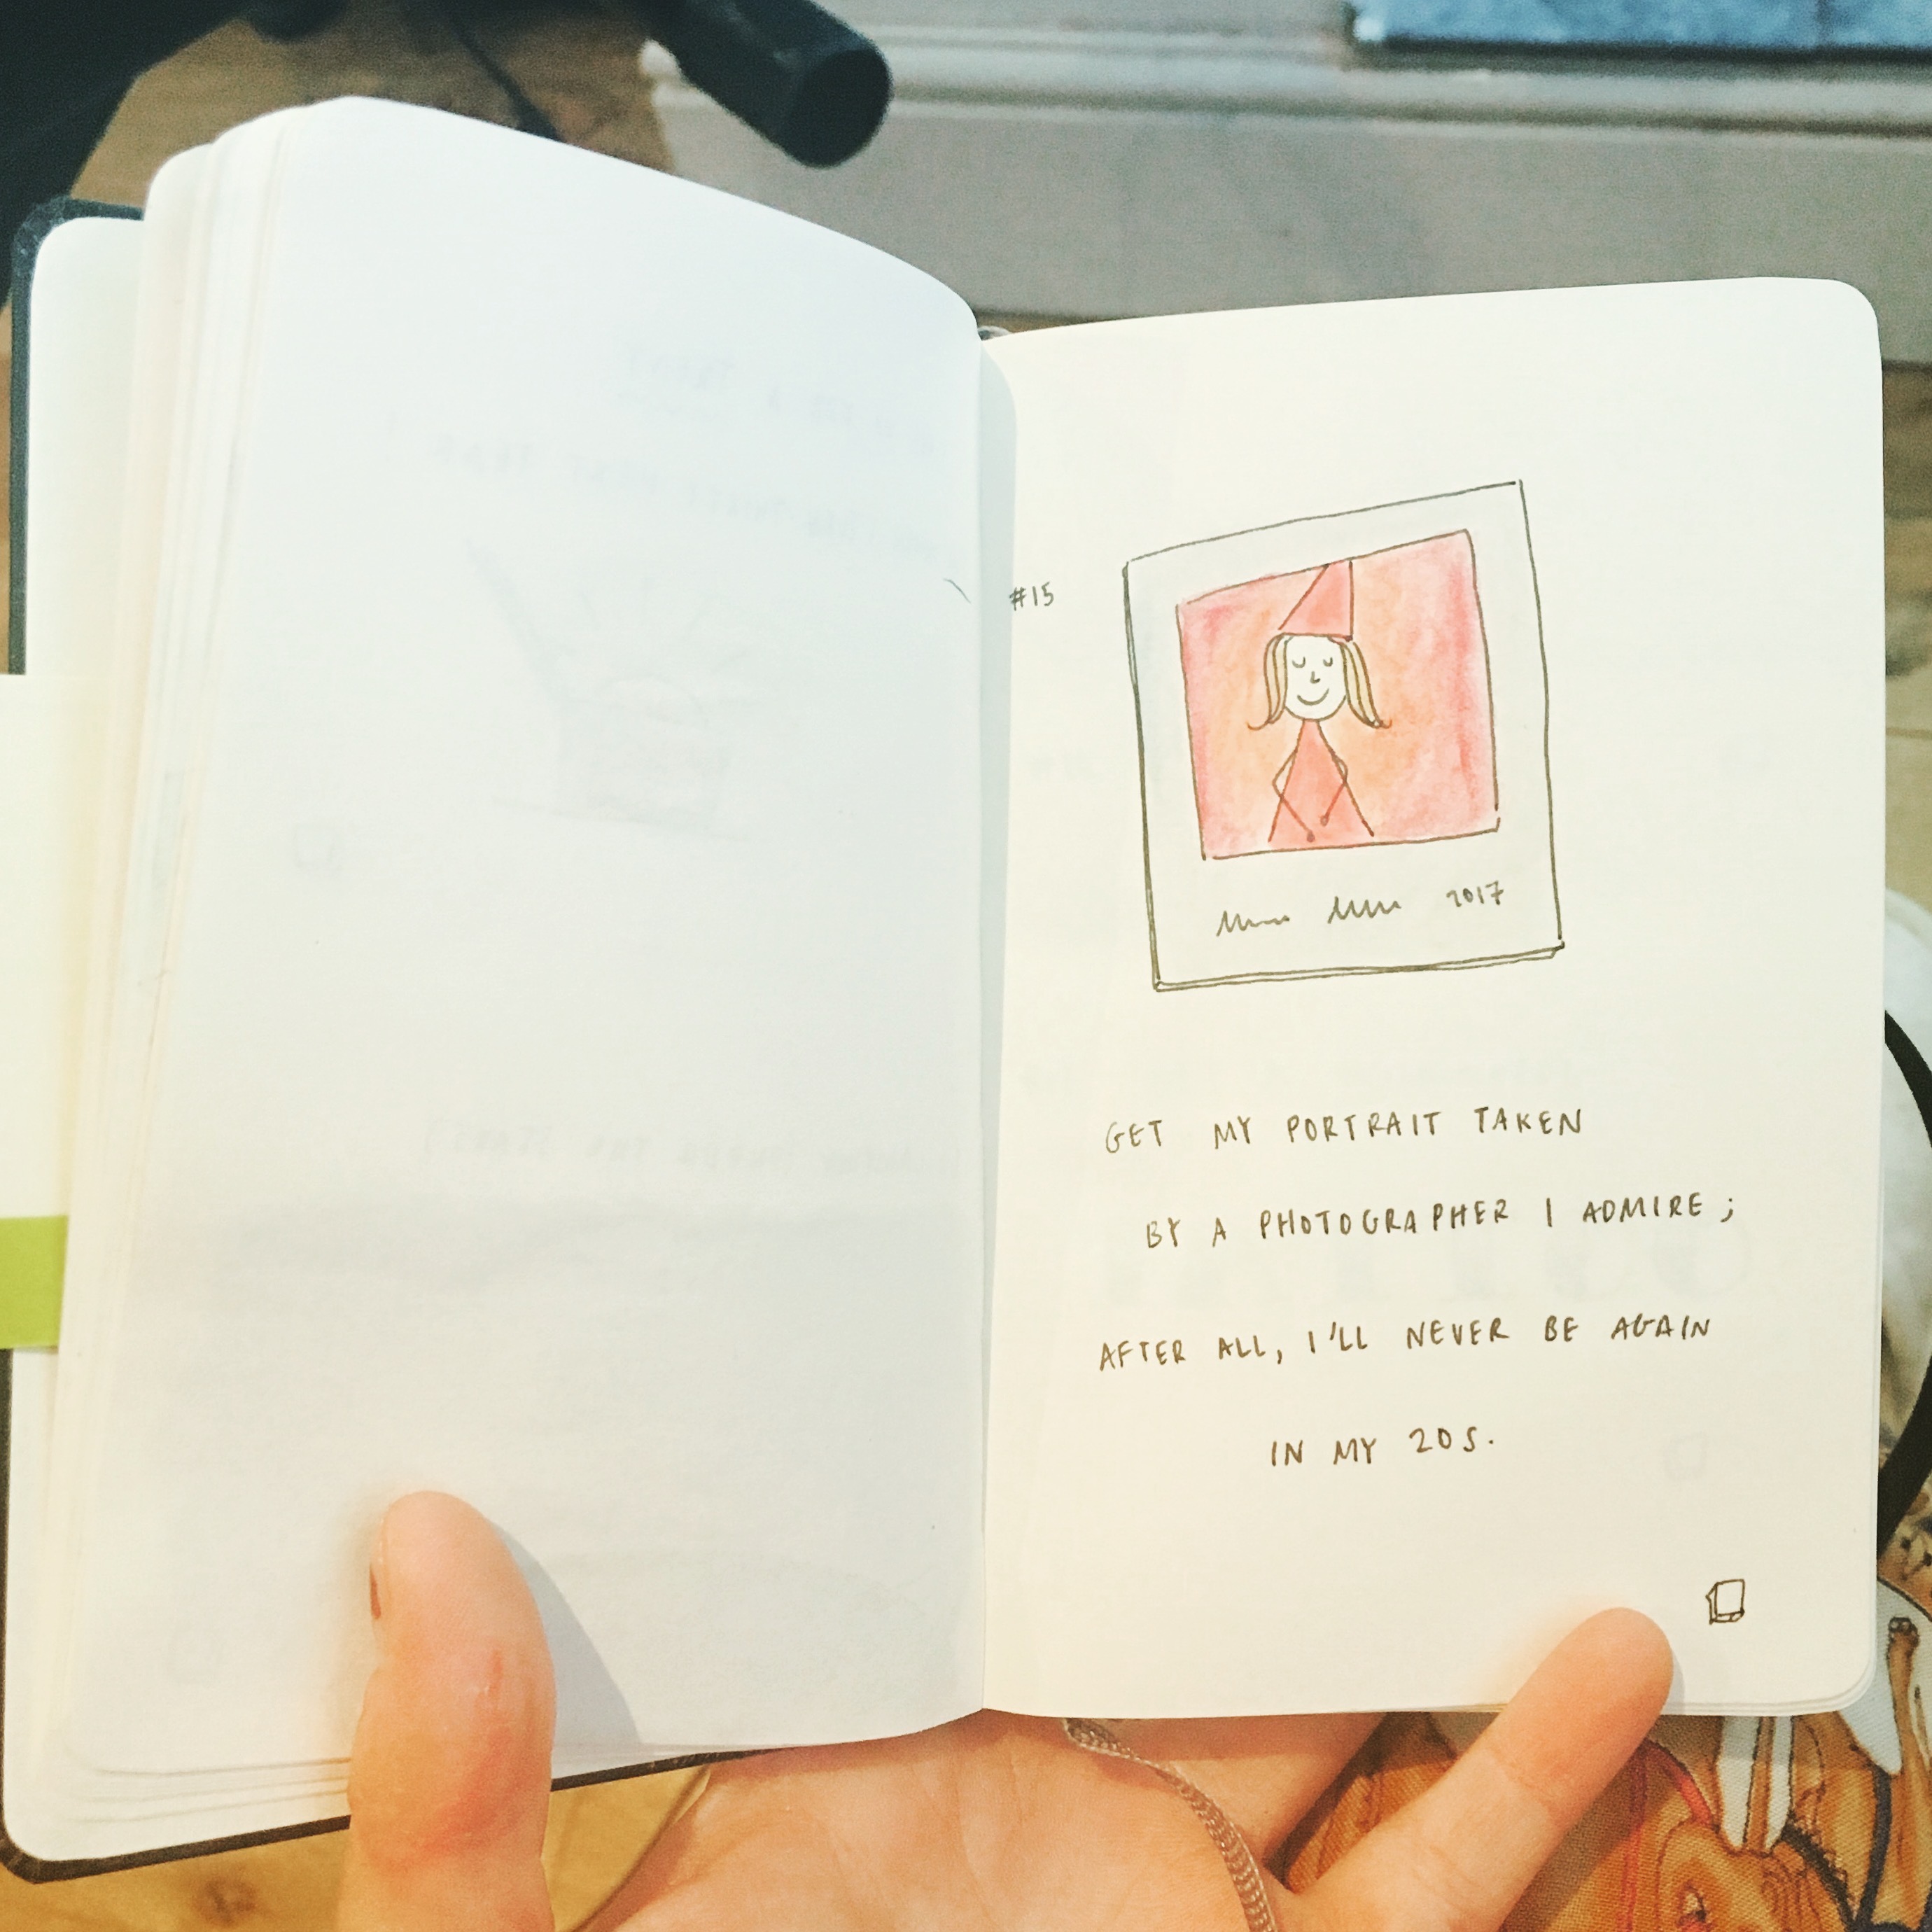 #15
2017
GET MY PORTRAIT TAKEN
BY A PHOTOGRAPHER I ADMIRE;
AFTER ALL, I'LL NEVER BE AGAIN
IN MY 20S.